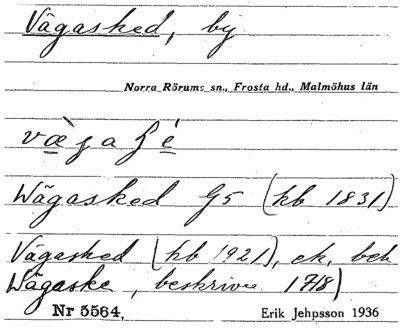 Vägasked, by
Norra Rörums sn., Frosta hd., Malmöhus län
Wägasked G5 (kb 1831)
Vägasked (kb 1921), ek. beh
Wägaske, beskrivn 1718)
Nr 5564. Erik Jehpsson 1936